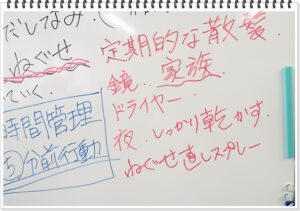 だしなみ
ねぐせ
ていく.
時間管理
⑤分前行動
定期的な散髪.
鏡. 家族.
ドライヤー.
夜. しっかり乾かす.
ねぐせ直しスプレー